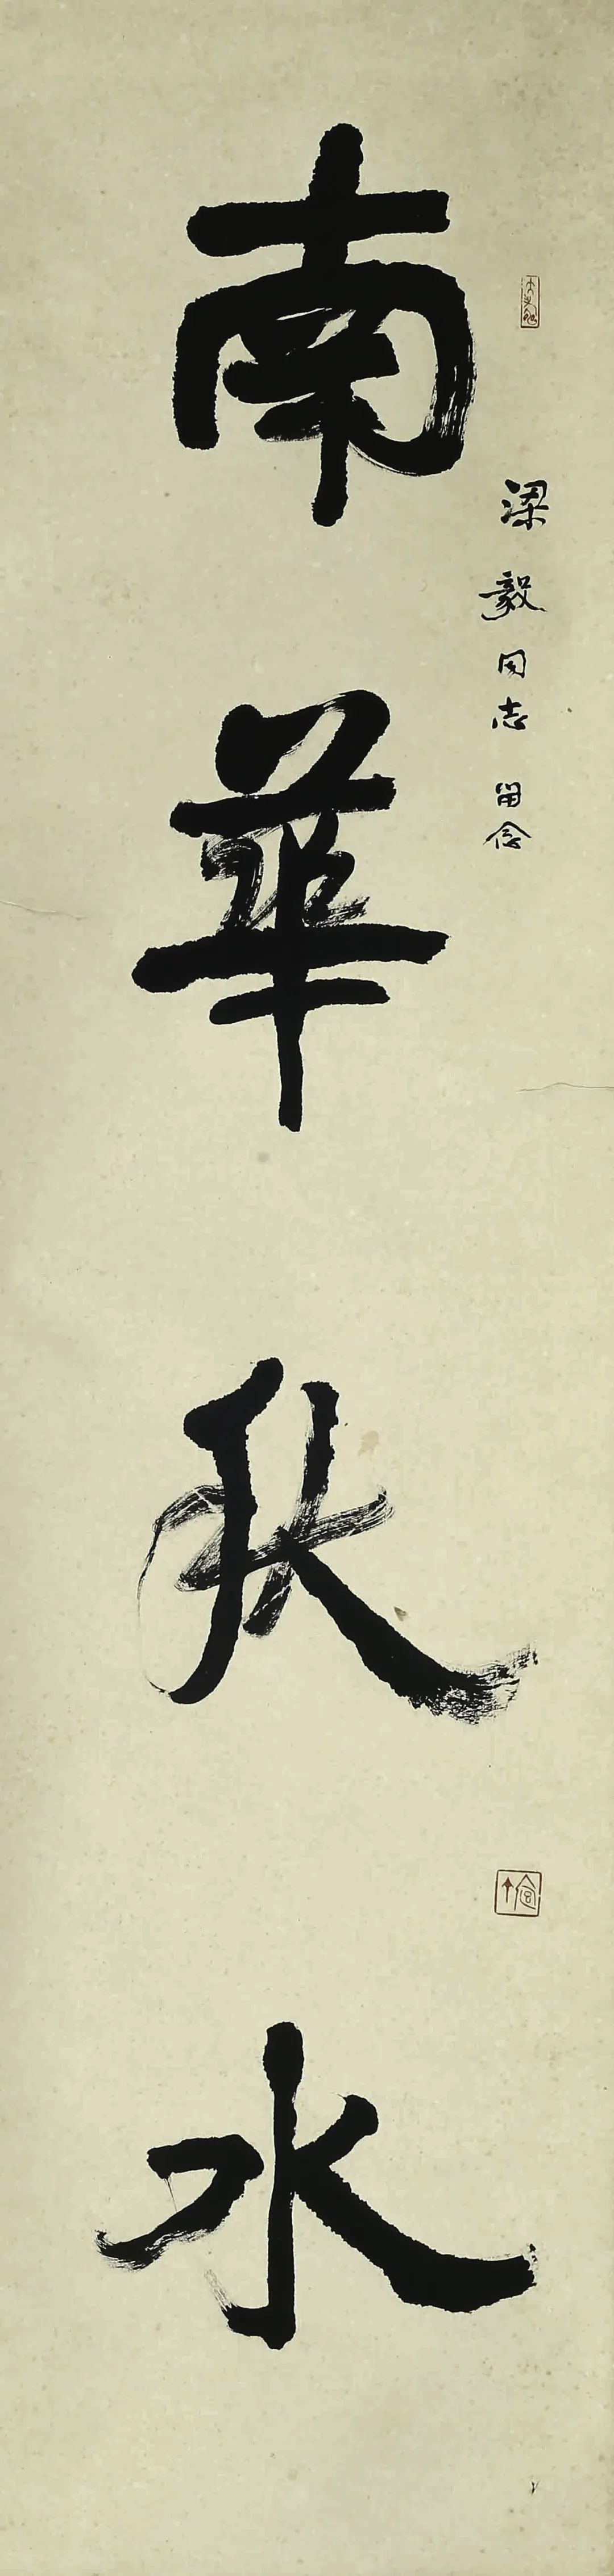 梁毅同志 留念
南華秋水